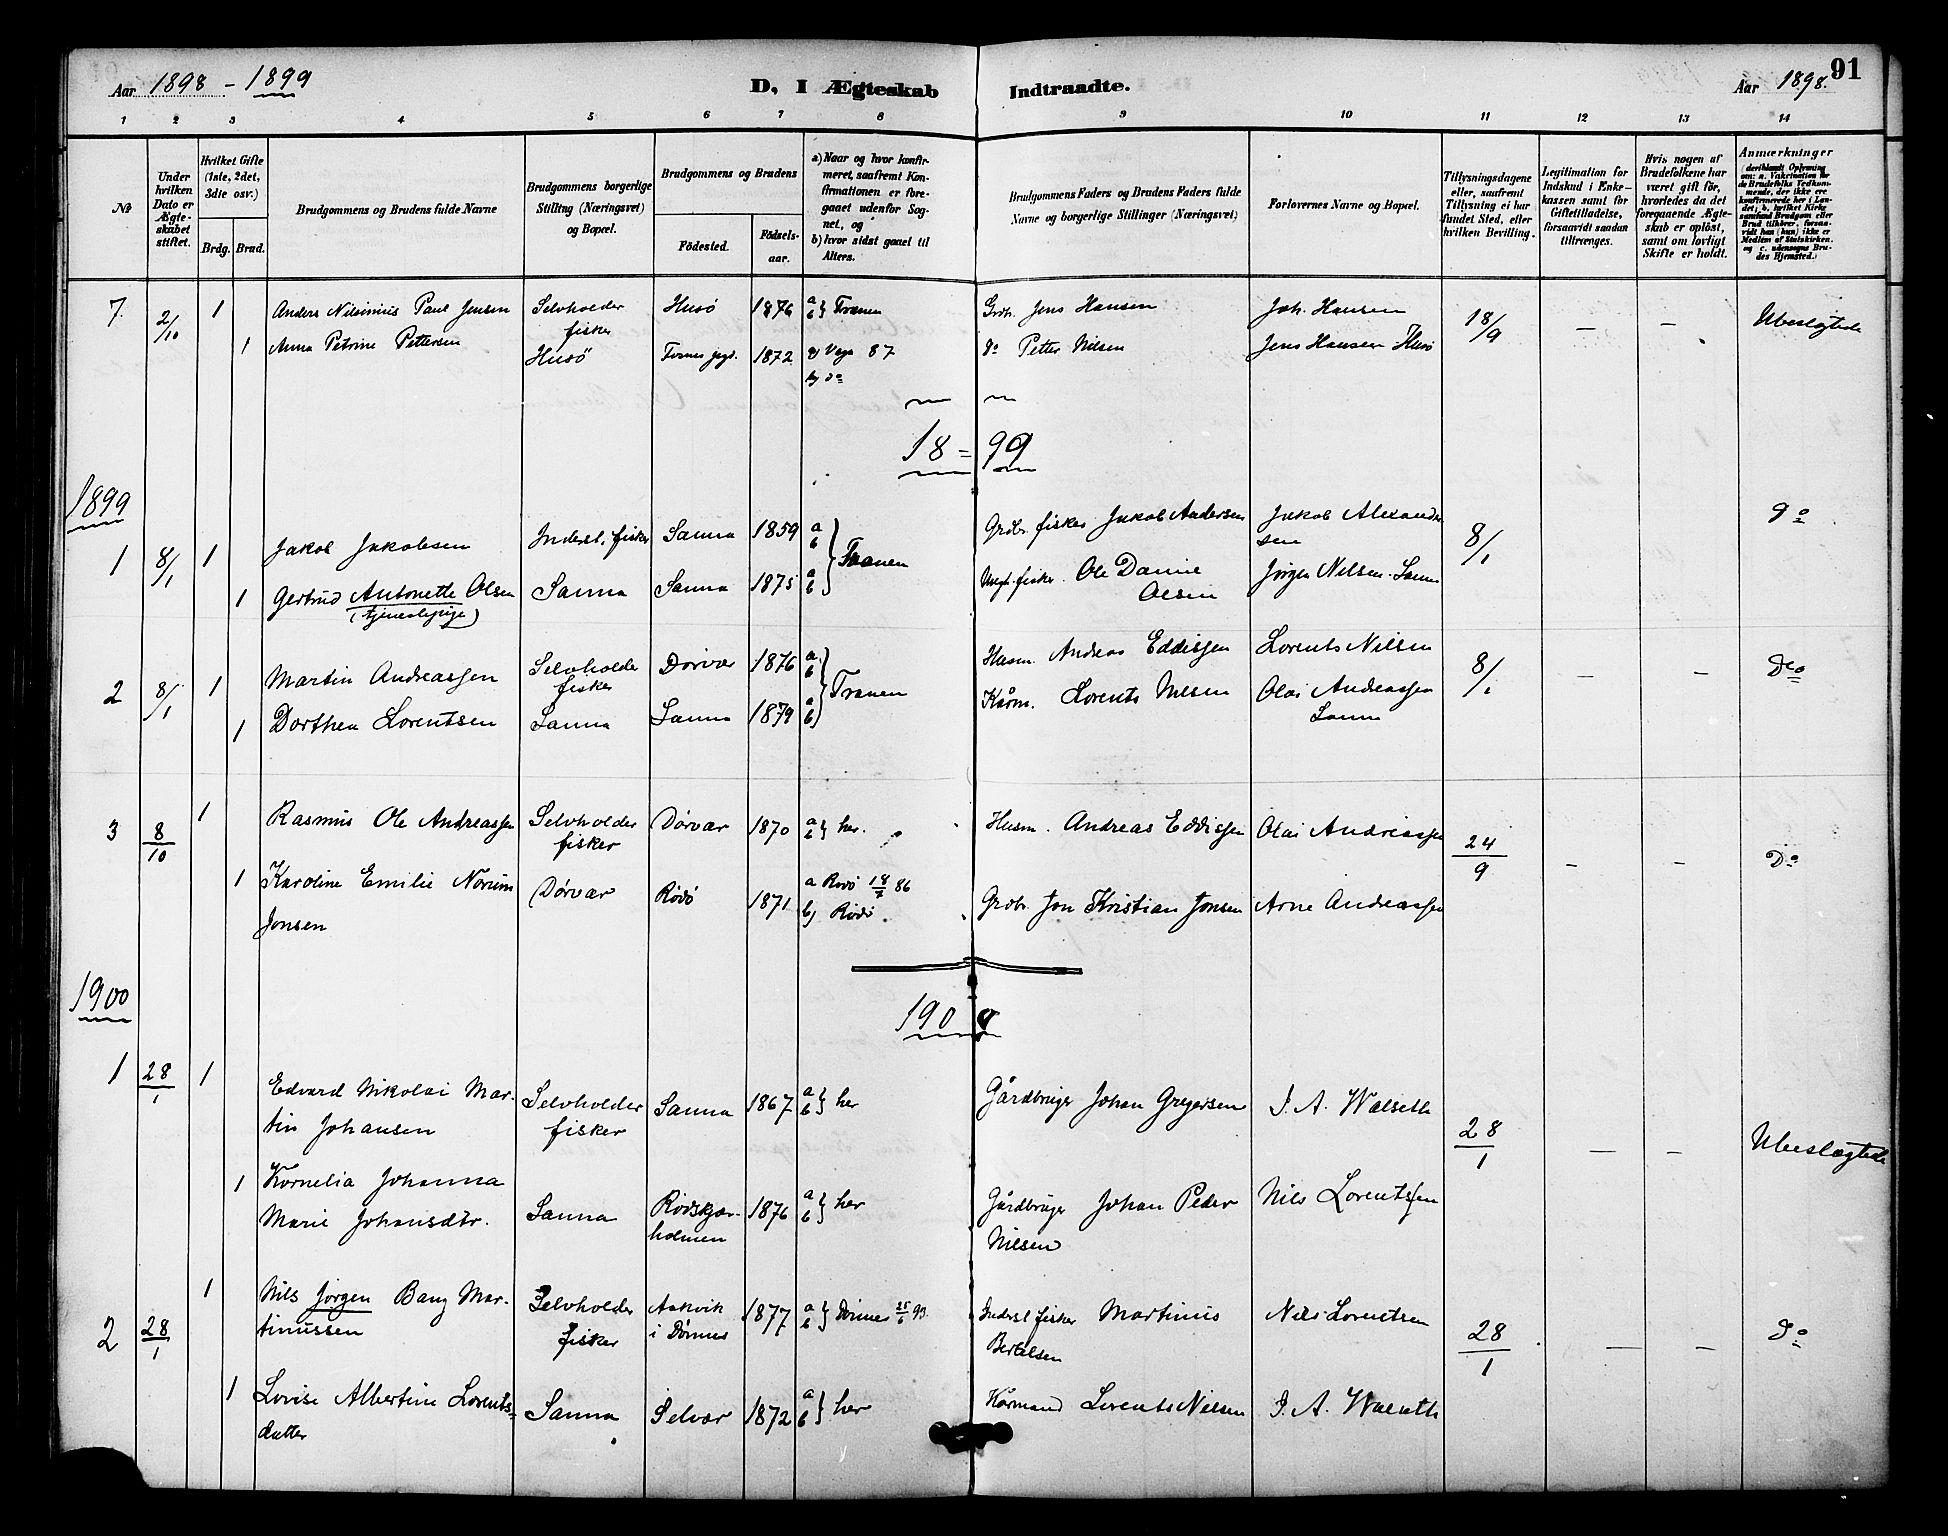 Aar 1898 - 1899
D, I Ægteskab Indtraadte.
Aar 1898.
91
1 2 3 4 5 6 7 8 9 10 11 12 13 14
№
Under hvilken Dato er Ægteskabet stiftet.
Hvilket Gifte (1ste, 2det, 3die osv.)
Brdg. Brud.
Brudgommens og Brudens fulde Navne
Brudgommens borgerlige Stilling (Næringsvei) og Bopæl.
Brudgommens og Brudens
Fødested. Fødselsaar.
a) Naar og hvor konfirmeret, saafremt Konfirmationen er foregaaet udenfor Sognet, og
b) hvor sidst gaaet til Alters.
Brudgommens Faders og Brudens Faders fulde Navne og borgerlige Stillinger (Næringsvei)
Forlovernes Navne og Bopæl.
Tillysningsdagene eller, saafremt Tillysning ei har fundet Sted, efter hvilken Bevilling.
Legitimation for Indskud i Enkekassen samt for Giftetilladelse, forsaavidt saadan tiltrænges.
Hvis nogen af Brudefolkene har været gift før, hvorledes da det foregaaende Ægteskab er opløst, samt om lovligt Skifte er holdt.
Anmærkninger
7. 2/10 1 Anders Nilsinius Paul Jensen Selvholder fisker Husö 1876 a b } Trænen Grdb. Jens Hansen Joh. Hansen 18/9 — — Ubeslægtede
1 Anna Petrine Pettersen Husö 1872 a) Vega 87 b) do do Petter Nilsen Jens Hansen Husö
18 = 99
1899
1 8/1 1 Jakob Jakobsen Inderst, fisker Sanna 1859 a b } Trænen Grdbr. fisker Jakob Andersen Jakob Alexandersen 8/1 do
1 Gertrud Antonette Olsen (tjenestepige) Sanna Sanna 1875 a b fisker Ole Danie Olsen Jørgen Nilsen. Sanna
2 8/1 1 Martin Andreassen Selvholder fisker Dørvær 1876 a b } Trænen Husm. Andreas Eddissen Lorents Nilsen 8/1 — — Do
1 Dorthea Lorentsen Sanna Sanna 1879 a b Kårm. Lorents Nilsen Olai Andreassen Sanna
3 8/10 1 Rasmus Ole Andreassen Selvholder fisker Dørvær 1870 a b } her. Husm. Andreas Eddissen Olai Andreassen 24/9 — — Do
1 Karoline Emilie Norum Jonsen Dørvær Rödö 1871 a Rödö 18/7 86 b) Rödö. Grdbr Jon Kristian Jonsen Arne Andreassen
1900
1900
1 28/1 1 Edvard Nikolai Martin Johansen Selvholder fisker Sanna 1867 a b } her Gårdbruger Johan Gregersen J. A. Walseth 28/1 — — Ubeslægtede
1 Kornelia Johanna Marie Johansdtr. Sanna Rödskjærholmen 1876 a b } her Gårdbruger Johan Peder Nilsen Nils Lorentssen
2 28/1 1 Nils Jørgen Bang Martinussen Selvholder fisker Aakvik i Dønnes 1877 a b } Dönnes 25/6 99. Inderst fisker Martinus Bertelsen Nils Lorentsen 28/1 — — do
1 Lovise Albertine Lorentsdatter Sanna Selvær 1872 a b } her Kårmand Lorents Nilsen J. A. Walseth